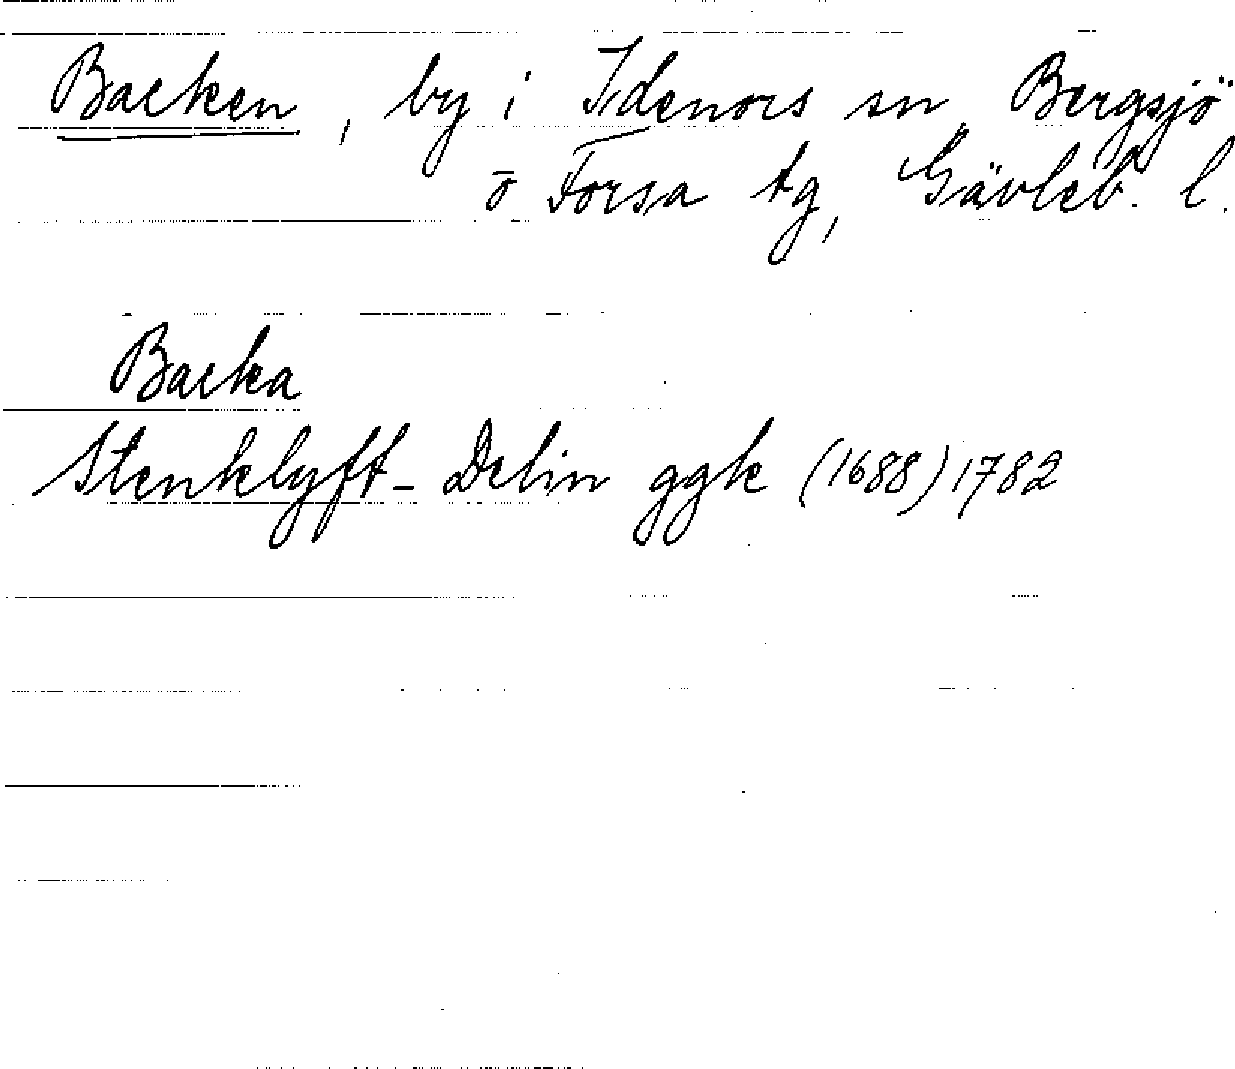 Backen, by i Idenors sn, Bergsjö
o Forsa tg, Gävleb. l.
Backa
Stenklyft- Delin ggk (1688) 1782